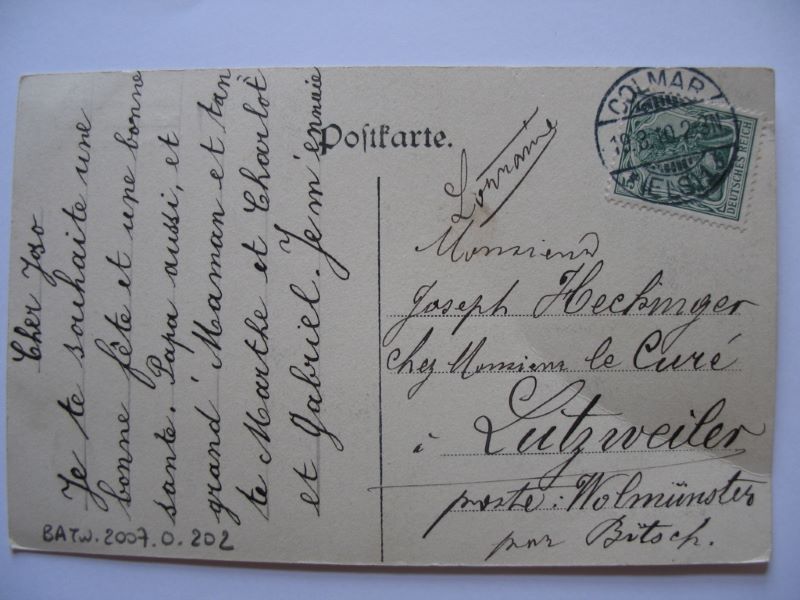 Cher Jojo
Je te souhaite une
bonne fête et une bonne
sante. Papa aussi, et
grand' Maman et tan
te Marthe et Charlot
et Gabriel. Je m'ennuie
Postkarte.
Lorraine
Monsieur
Joseph Heckinger
chez Monsieur le Curé
à Lutzweiler
poste: Wolmünster
par Bitsch.
COLMAR
18.8.10.2-3N
* (ELS.) 1 *
DEUTSCHES REICH
BATW.2007.0.202